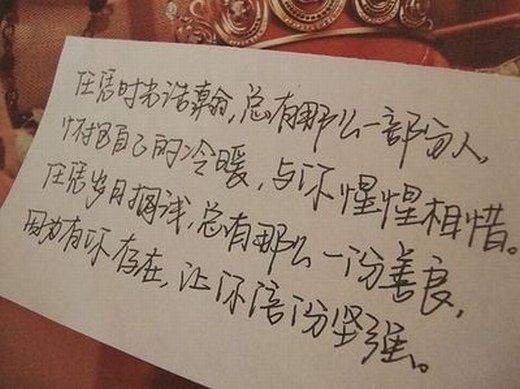 任凭时光浩翰,总有那么一部分人,
怀抱自己的冷暖,与你惺惺相惜。
任凭岁月搁浅,总有那么一份善良,
因为有你存在,让你倍份坚强。